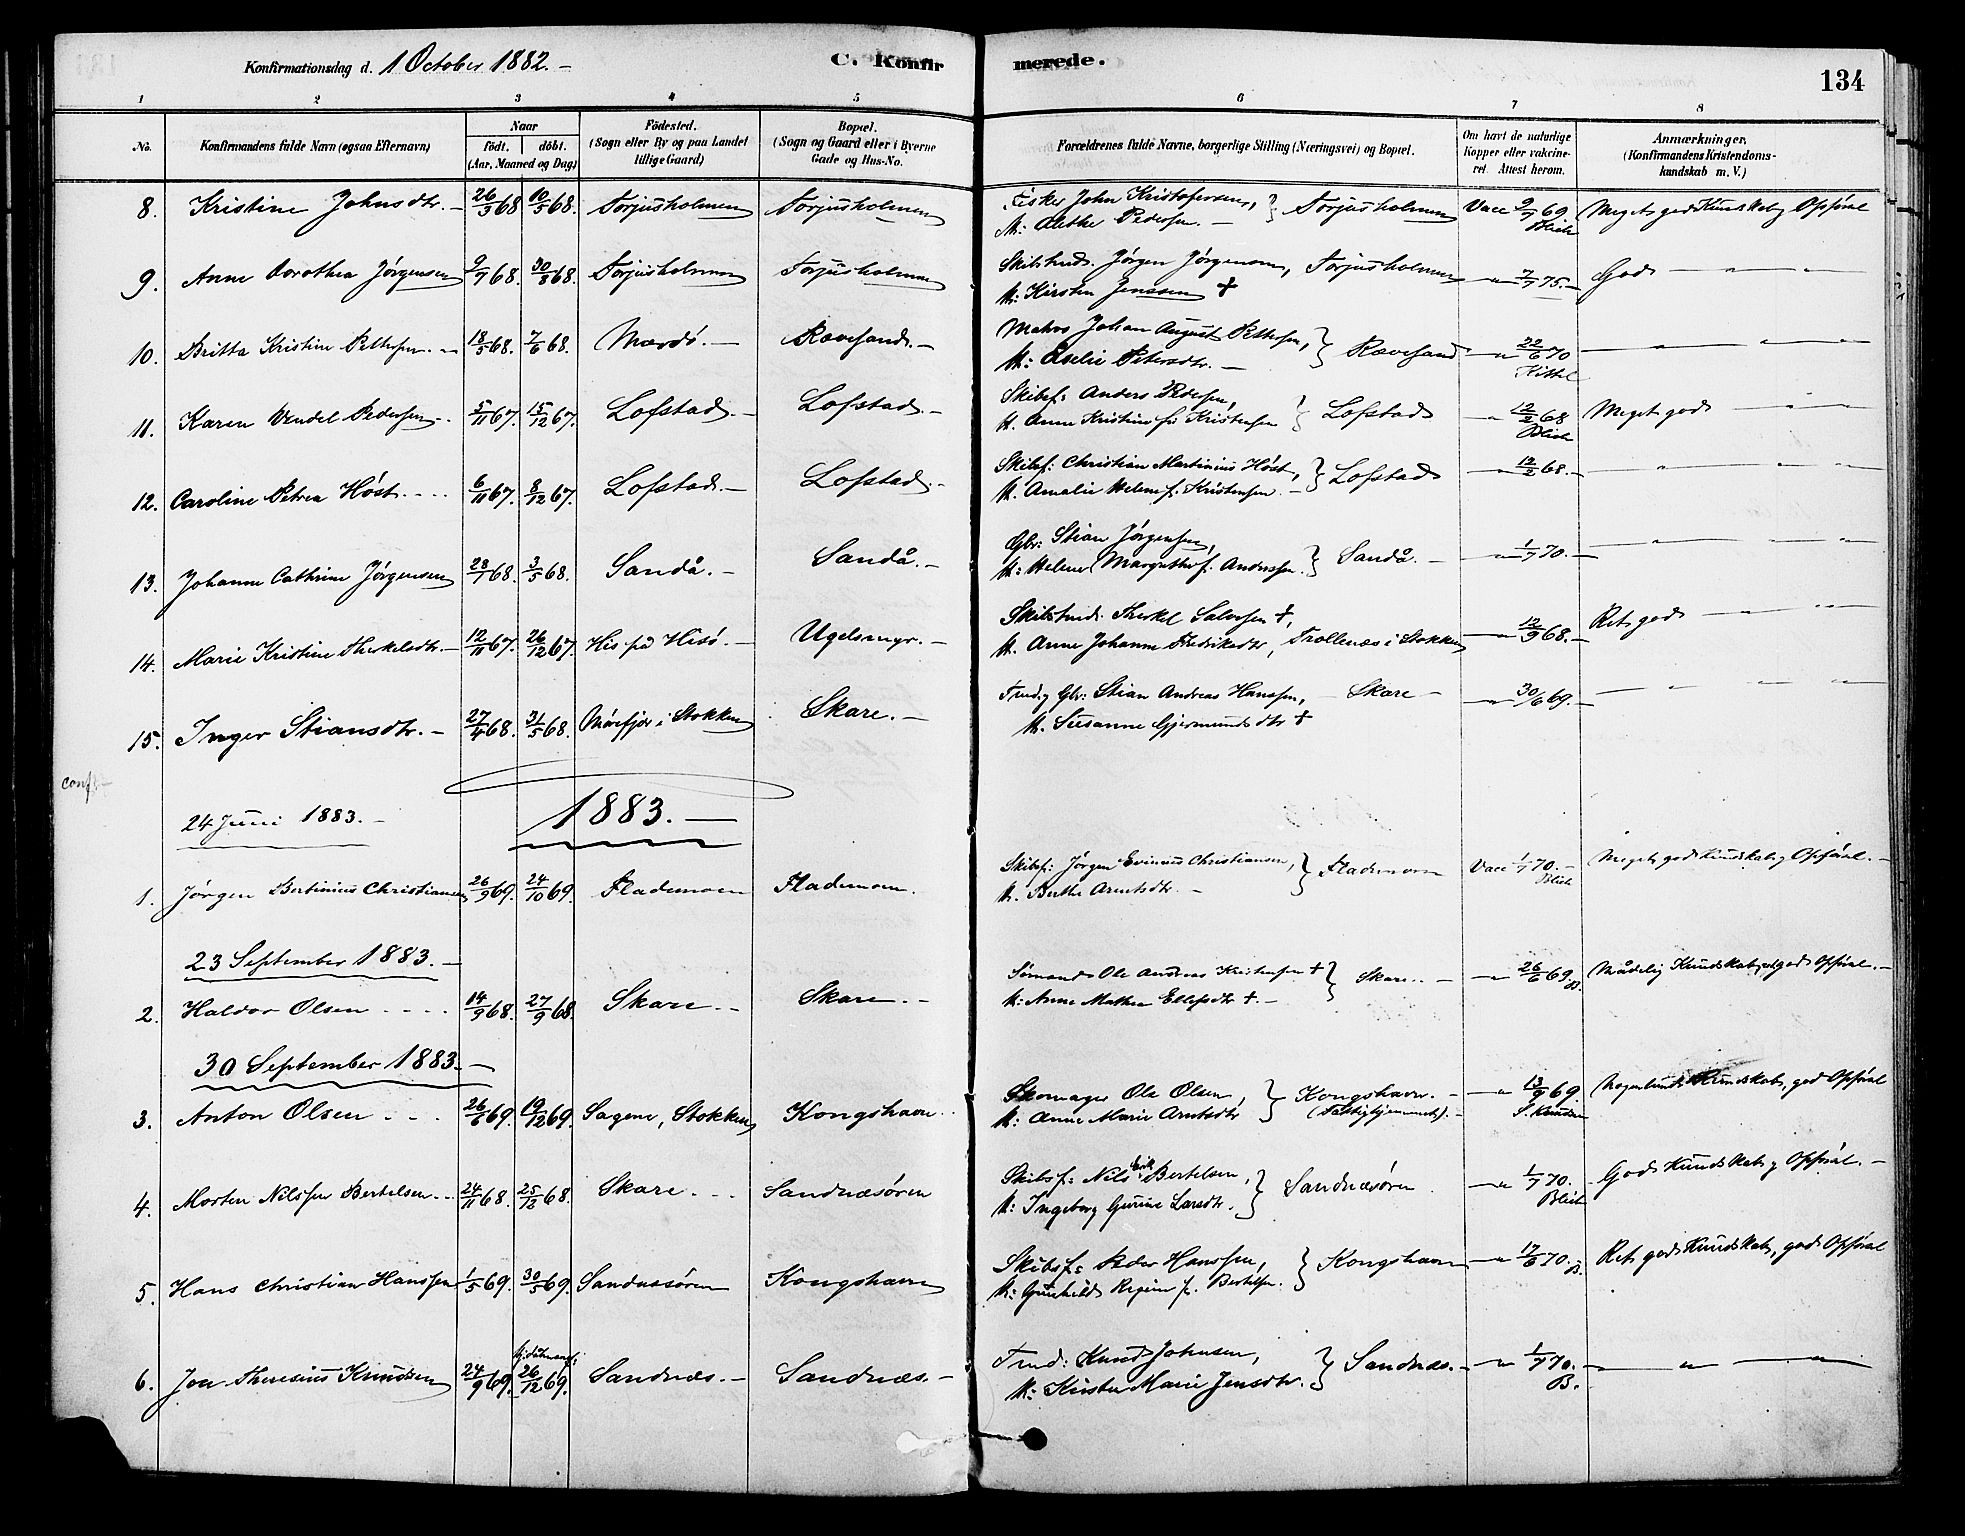 Konfirmationsdag d. 1 October 1882. –
C. Konfir
merede.
134
1 2 3 4 5 6 7 8
No.
Konfirmandens fulde Navn (ogsaa Efternavn)
Naar
født. døbt.
(Aar, Maaned og Dag)
Fødested.
(Sogn eller By og paa Landet
tillige Gaard)
Bopæl.
(Sogn og Gaard eller i Byerne
Gade og Hus-No.
Forældrenes fulde Navne, borgerlige Stilling (Næringsvei) og Bopæl.
Om havt de naturlige
Kopper eller vakcine-
ret Attest herom.
Anmærkninger,
(Konfirmandens Kristendoms-
kundskab m. V.)
8. Kristine Johnsdtr. – 26/3 68 10/5 68. Torjusholmen Torjusholmen Fisker John Kristofersen, } Torjusholmen Vacc 9/7 69. Meget god Kundskab, Opførsel
M: Alethe Pedersen. – Blich
9. Anne Dorothea Jørgensen 9/7 68. 30/8 68. Torjusholmen Torjusholmen Skibstmd. Jørgen Jørgensen, Torjusholmen – " 7/7 75. – God – " – "
M: Kirsten Jenssen +
10. Britta Kristine Pettersen. – 18/5 68. 7/6 68. Mærdø. – Ravesand. – Matros Johan August Pettersen, } Rævesand – " 22/6 70 – " – " –
M: Eselie Petersdtr. – Kittel
11. Karen Wendel Pedersen. – 5/11 67. 15/12 67. Lofstad. – Lofstad. – Skibsf: Anders Pedersen, } Lofstad – " 12/2 68 Meget god – " – " –
M. Anne Kristine f. Kristensen Blich
12. Caroline Petrea Høst. – – 6/11 67. 8/12 67. Lofstad. – Lofstad. – Skibsf: Christian Martinius Høst, } Lofstad – " 12/2 68. – – " – " –
M. Amalie Helene f. Kristensen. –
13. Johanne Cathrine Jørgensen 28/1 68. 3/5 68. Sandå. – Sandå. – Gbr: Stian Jørgensen, } Sandå. – – " 1/7 70. – – " – " –
M: Helene Margrethe f. Andersen.
14. Marie Kristine Therkelsdtr. – 12/11 67. 26/12 67. His på Hisø. – Ugelsmyr. – Skibstmd. Therkel Salvesen +,
M. Anne Johanne Fredriksdtr, Trollenæs i Stokken – " 12/9 68. – Ret god – " – "
15. Inger Stiansdtr. – 27/4 68. 31/5 68. Mørefjær i Stokken Skare. – Tmd. og Gbr: Stian Andreas Hanssen, – Skare – – " 30/6 69. – – " – " –
M. Susanne Gjermundsdtr +
conf. –
1883. –
24 Juni 1883. –
1. Jørgen Bertinius Christiansen 26/9 69. 24/10 69. Flademoen Flademoen. Skibsf: Jørgen Evinius Christiansen, } Flademoen Vacc 1/7 70. – Meget god Kundskab, Opførsel. –
M. Berthe Arntsdtr. – Blich
23 September 1883. –
2. Haldor Olsen – – – – 14/9 68. 27/9 68. Skare. – Skare. – Sømand Ole Andreas Kristensen + } Skare. – – " 26/6 69. B. Mådelig Kundskab, god Opførsel. –
M: Anne Mathea Ellefsdtr +. –
30 September 1883. –
3. Anton Olsen – – – 26/6 69. 19/12 69. Sagene, Stokken Kongshavn. Skomager Ole Olsen, } Kongshavn. – – " 13/9 69. Nogenlunde Kundskab, god Opførsel
M: Anne Marie Arntsdtr (Fattighjemmet). – S. Knudsen
4. Morten Nilssen Bertelsen. – 24/11 68. 25/12 68. Skare. – – Sandnæsøren Skibsf: Nils Erik Bertelsen, } Sandnæsøren – " 1/7 70. God Kundskab, Opførsel. –
M: Ingeborg Gurine Larsdtr. Blich
5. Hans Christian Hanssen 1/5 69. 30/5 69. Sandnæsøren Kongshavn Skibsf: Peder Hanssen, } Kongshavn – " 17/6 70. B. Ret god Kundskab, god Opførsel
M: Gunhild Regine f. Bertelsen.
6. Joa Theresius Knudsen 24/9 69. 26/12 69. Sandnæs. – Sandnæs. – Tmd: Knud Johnsen, } Sandnæs. – – " 1/7 70. – – " – " –
M: Kirsten Marie Jensdtr. B.